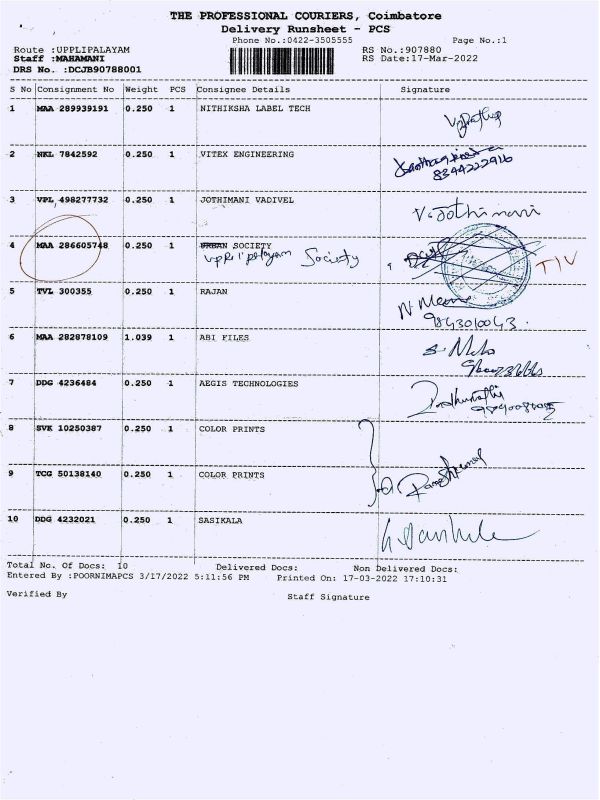 THE PROFESSIONAL COURIERS, Coimbatore
Delivery Runsheet - PCS
Phone No.:0422-3505555
Page No.:1
Route :UPPLIPALAYAM
RS No.:907880
Staff :MAHAMANI
RS Date:17-Mar-2022
DRS No. :DCJB90788001
S No Consignment No Weight PCS Consignee Details Signature
1 MAA 289939191 0.250 1 NITHIKSHA LABEL TECH
2 NKL 7842592 0.250 1 VITEX ENGINEERING
8344222916
3 VPL 498277732 0.250 1 JOTHIMANI VADIVEL V.Jothimani
4 MAA 286605748 0.250 1 URBAN SOCIETY
Upplipalayam Society
TIV
5 TVL 300355 0.250 1 RAJAN
9843010043
6 MAA 282878109 1.039 1 ABI FILES
7 DDG 4236484 0.250 1 AEGIS TECHNOLOGIES
8 SVK 10250387 0.250 1 COLOR PRINTS
9 TCG 50138140 0.250 1 COLOR PRINTS
10 DDG 4232021 0.250 1 SASIKALA
Total No. Of Docs: 10 Delivered Docs: Non Delivered Docs:
Entered By :POORNIMAPCS 3/17/2022 5:11:56 PM Printed On: 17-03-2022 17:10:31
Verified By Staff Signature